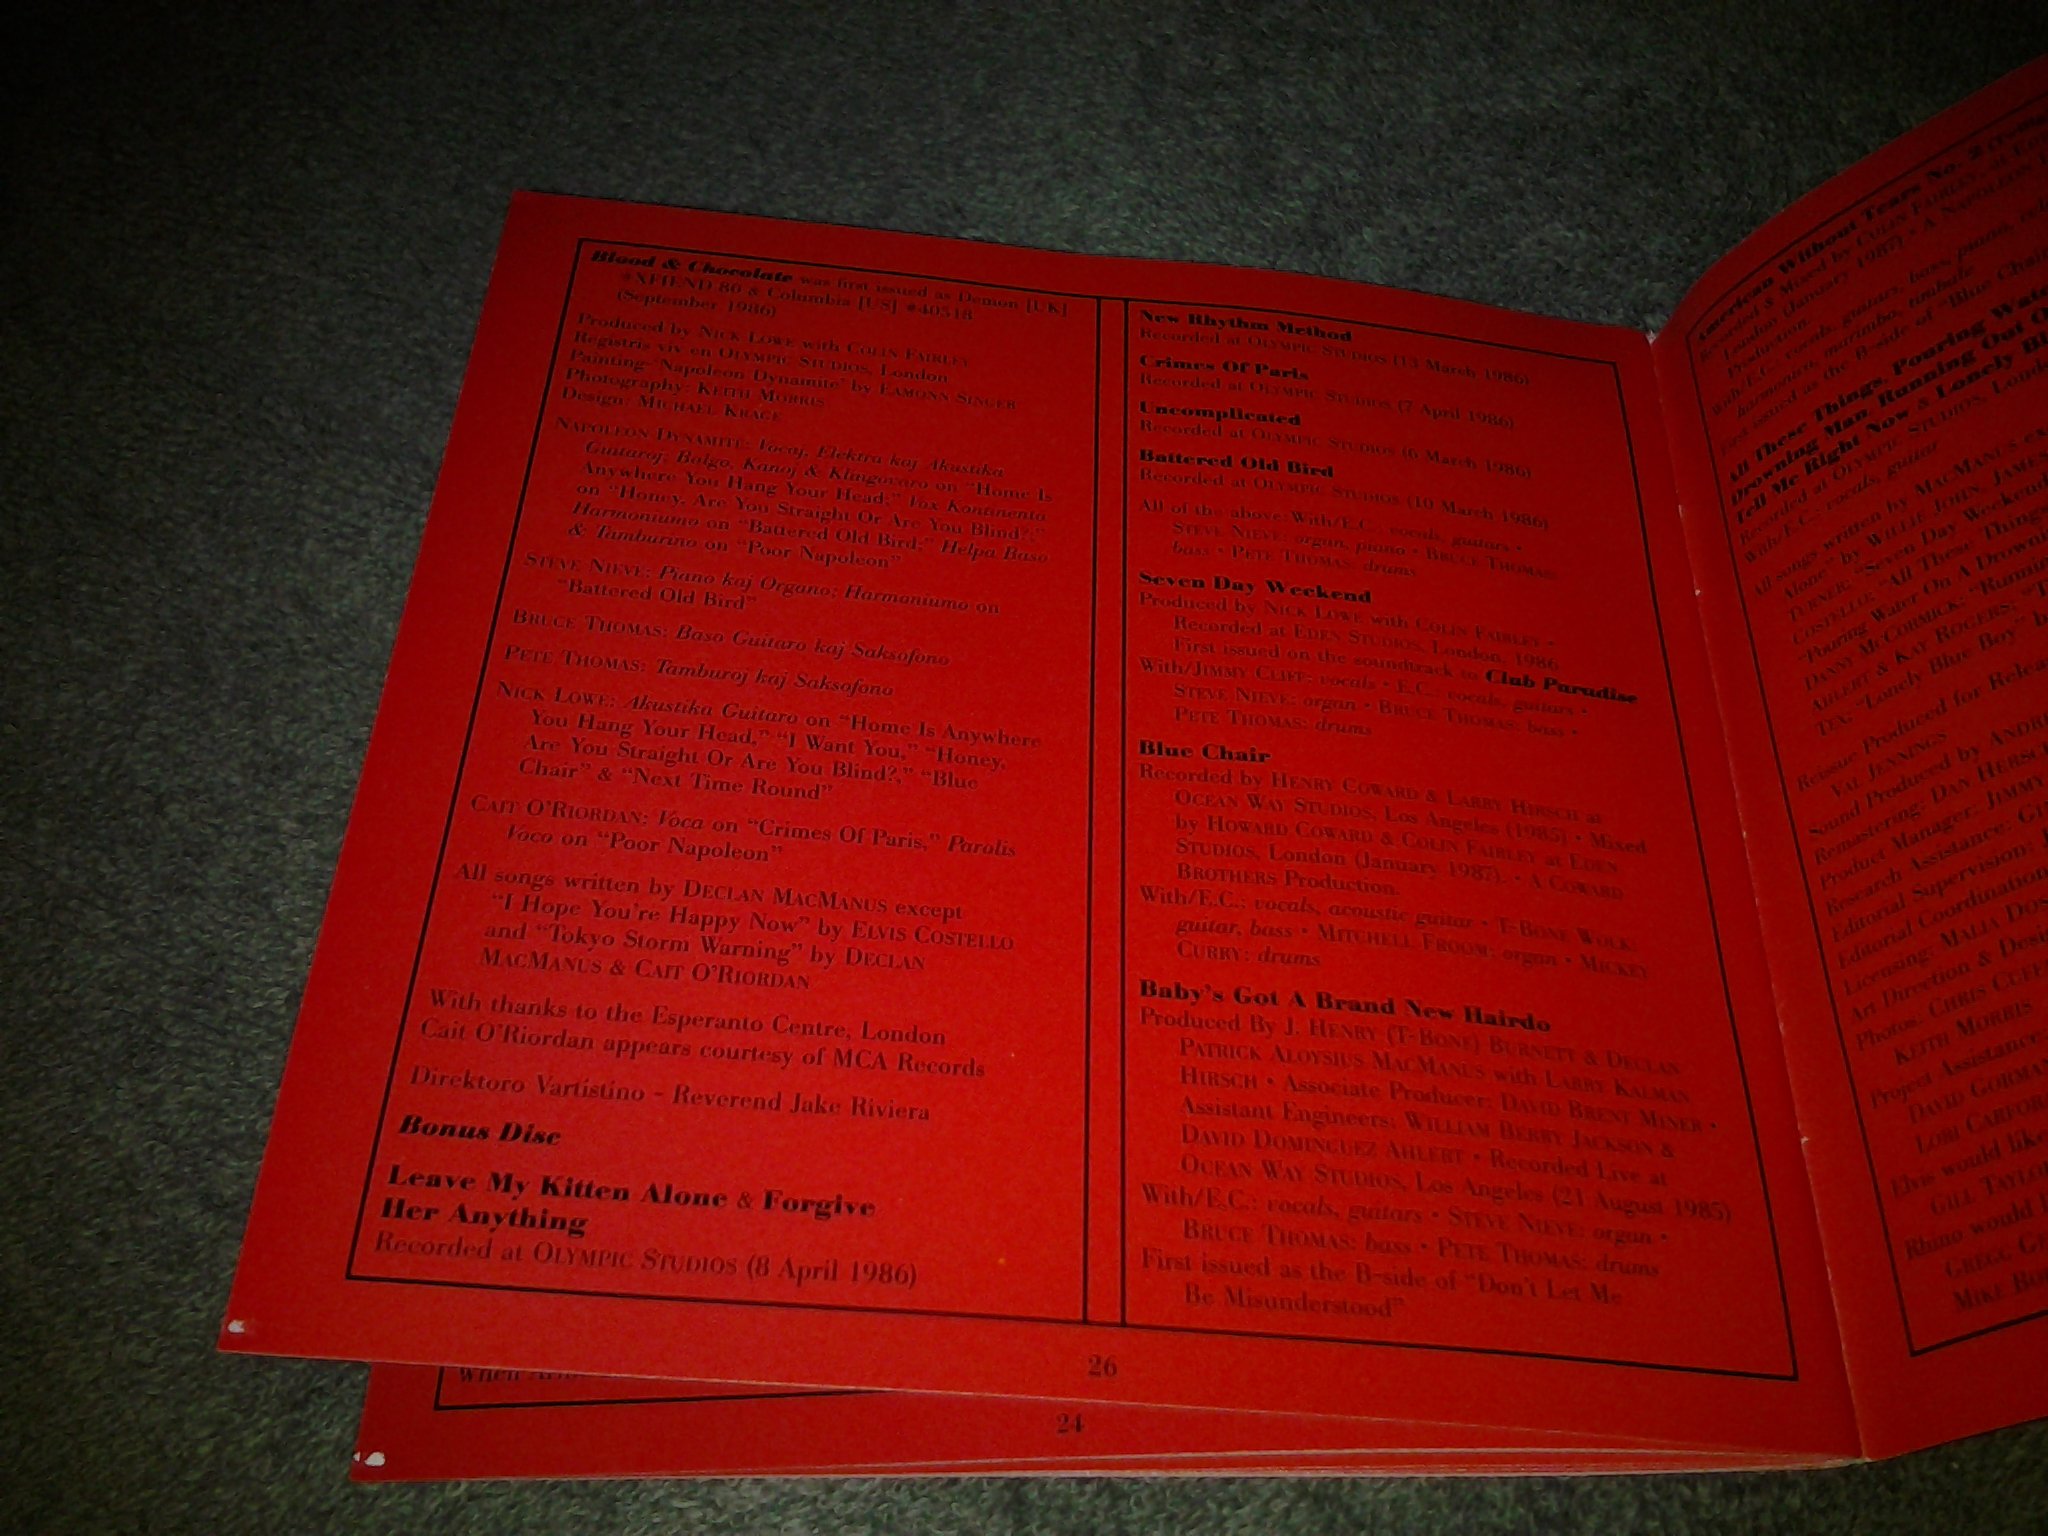 Blood & Chocolate was first issued as Demon [UK]
#XFIEND 80 & Columbia [US] #40518
(September 1986)
Produced by NICK LOWE with COLIN FAIRLEY
Registris viv en OLYMPIC STUDIOS, London
Painting-"Napoleon Dynamite" by EAMONN SINGER
Photography: KEITH MORRIS
Design: MICHAEL KRAGE
NAPOLEON DYNAMITE: Vocaj, Elektra kaj Akustika
Guitaroj; Balgo, Kanoj & Klingovaro on "Home Is
Anywhere You Hang Your Head;" Vox Kontinenta
on "Honey, Are You Straight Or Are You Blind?;"
Harmoniumo on "Battered Old Bird;" Helpa Baso
& Tamburino on "Poor Napoleon"
STEVE NIEVE: Piano kaj Organo; Harmoniumo on
"Battered Old Bird"
BRUCE THOMAS: Baso Guitaro kaj Saksofono
PETE THOMAS: Tamburoj kaj Saksofono
NICK LOWE: Akustika Guitaro on "Home Is Anywhere
You Hang Your Head," "I Want You," "Honey,
Are You Straight Or Are You Blind?," "Blue
Chair" & "Next Time Round"
CAIT O'RIORDAN: Voca on "Crimes Of Paris," Parolis
Voco on "Poor Napoleon"
All songs written by DECLAN MACMANUS except
"I Hope You're Happy Now" by ELVIS COSTELLO
and "Tokyo Storm Warning" by DECLAN
MACMANUS & CAIT O'RIORDAN
With thanks to the Esperanto Centre, London
Cait O'Riordan appears courtesy of MCA Records
Direktoro Vartistino - Reverend Jake Riviera
Bonus Disc
Leave My Kitten Alone & Forgive
Her Anything
Recorded at OLYMPIC STUDIOS (8 April 1986)
New Rhythm Method
Recorded at OLYMPIC STUDIOS (13 March 1986)
Crimes Of Paris
Recorded at OLYMPIC STUDIOS (7 April 1986)
Uncomplicated
Recorded at OLYMPIC STUDIOS (6 March 1986)
Battered Old Bird
Recorded at OLYMPIC STUDIOS (10 March 1986)
All of the above: With/E.C.: vocals, guitars •
STEVE NIEVE: organ, piano • BRUCE THOMAS:
bass • PETE THOMAS: drums
Seven Day Weekend
Produced by NICK LOWE with COLIN FAIRLEY •
Recorded at EDEN STUDIOS, London, 1986
First issued on the soundtrack to Club Paradise
With/JIMMY CLIFF: vocals • E.C.: vocals, guitars •
STEVE NIEVE: organ • BRUCE THOMAS: bass •
PETE THOMAS: drums
Blue Chair
Recorded by HENRY COWARD & LARRY HIRSCH at
OCEAN WAY STUDIOS, Los Angeles (1985) • Mixed
by HOWARD COWARD & COLIN FAIRLEY at EDEN
STUDIOS, London (January 1987). • A COWARD
BROTHERS Production.
With/E.C.: vocals, acoustic guitar • T-BONE WOLK:
guitar, bass • MITCHELL FROOM: organ • MICKEY
CURRY: drums
Baby's Got A Brand New Hairdo
Produced By J. HENRY (T-BONE) BURNETT & DECLAN
PATRICK ALOYSIUS MACMANUS with LARRY KALMAN
HIRSCH • Associate Producer: DAVID BRENT MINER •
Assistant Engineers: WILLIAM BERRY JACKSON &
DAVID DOMINGUEZ AHLERT • Recorded Live at
OCEAN WAY STUDIOS, Los Angeles (21 August 1985)
With/E.C.: vocals, guitars • STEVE NIEVE: organ •
BRUCE THOMAS: bass • PETE THOMAS: drums
First issued as the B-side of "Don't Let Me
Be Misunderstood"
26
When
24
American Without Tears No.
Recorded & Mixed by COLIN FAIRLEY at
London (January 1987) • A NAPOLEON
Production.
With/E.C.: vocals, guitars, bass, piano,
harmonica, marimba, timbale
First issued as the B-side of "Blue Chair"
All These Things, Pouring Water
Drowning Man, Running Out
Tell Me Right Now & Lonely
Recorded at OLYMPIC STUDIOS,
With/E.C.: vocals, guitar
All songs written by MACMANUS
Alone" by WILLIE JOHN, JAMES
TURNER; "Seven Day Weekend
COSTELLO; "All These Things
"Pouring Water On A
DANNY MCCORMICK; "Running
AHLERT & KAY ROGERS;
TEX; "Lonely Blue Boy"
Reissue Produced for
VAL JENNINGS
Sound Produced by
Remastering: DAN
Product Manager: JIMMY
Research Assistance:
Editorial Supervision:
Editorial Coordination
Licensing: MALIA
Art Direction &
Photos: CHRIS
KEITH MORRIS
Project Assistance
DAVID
LORI
Elvis would like
GILL
Rhino would
GREGG
MIKE